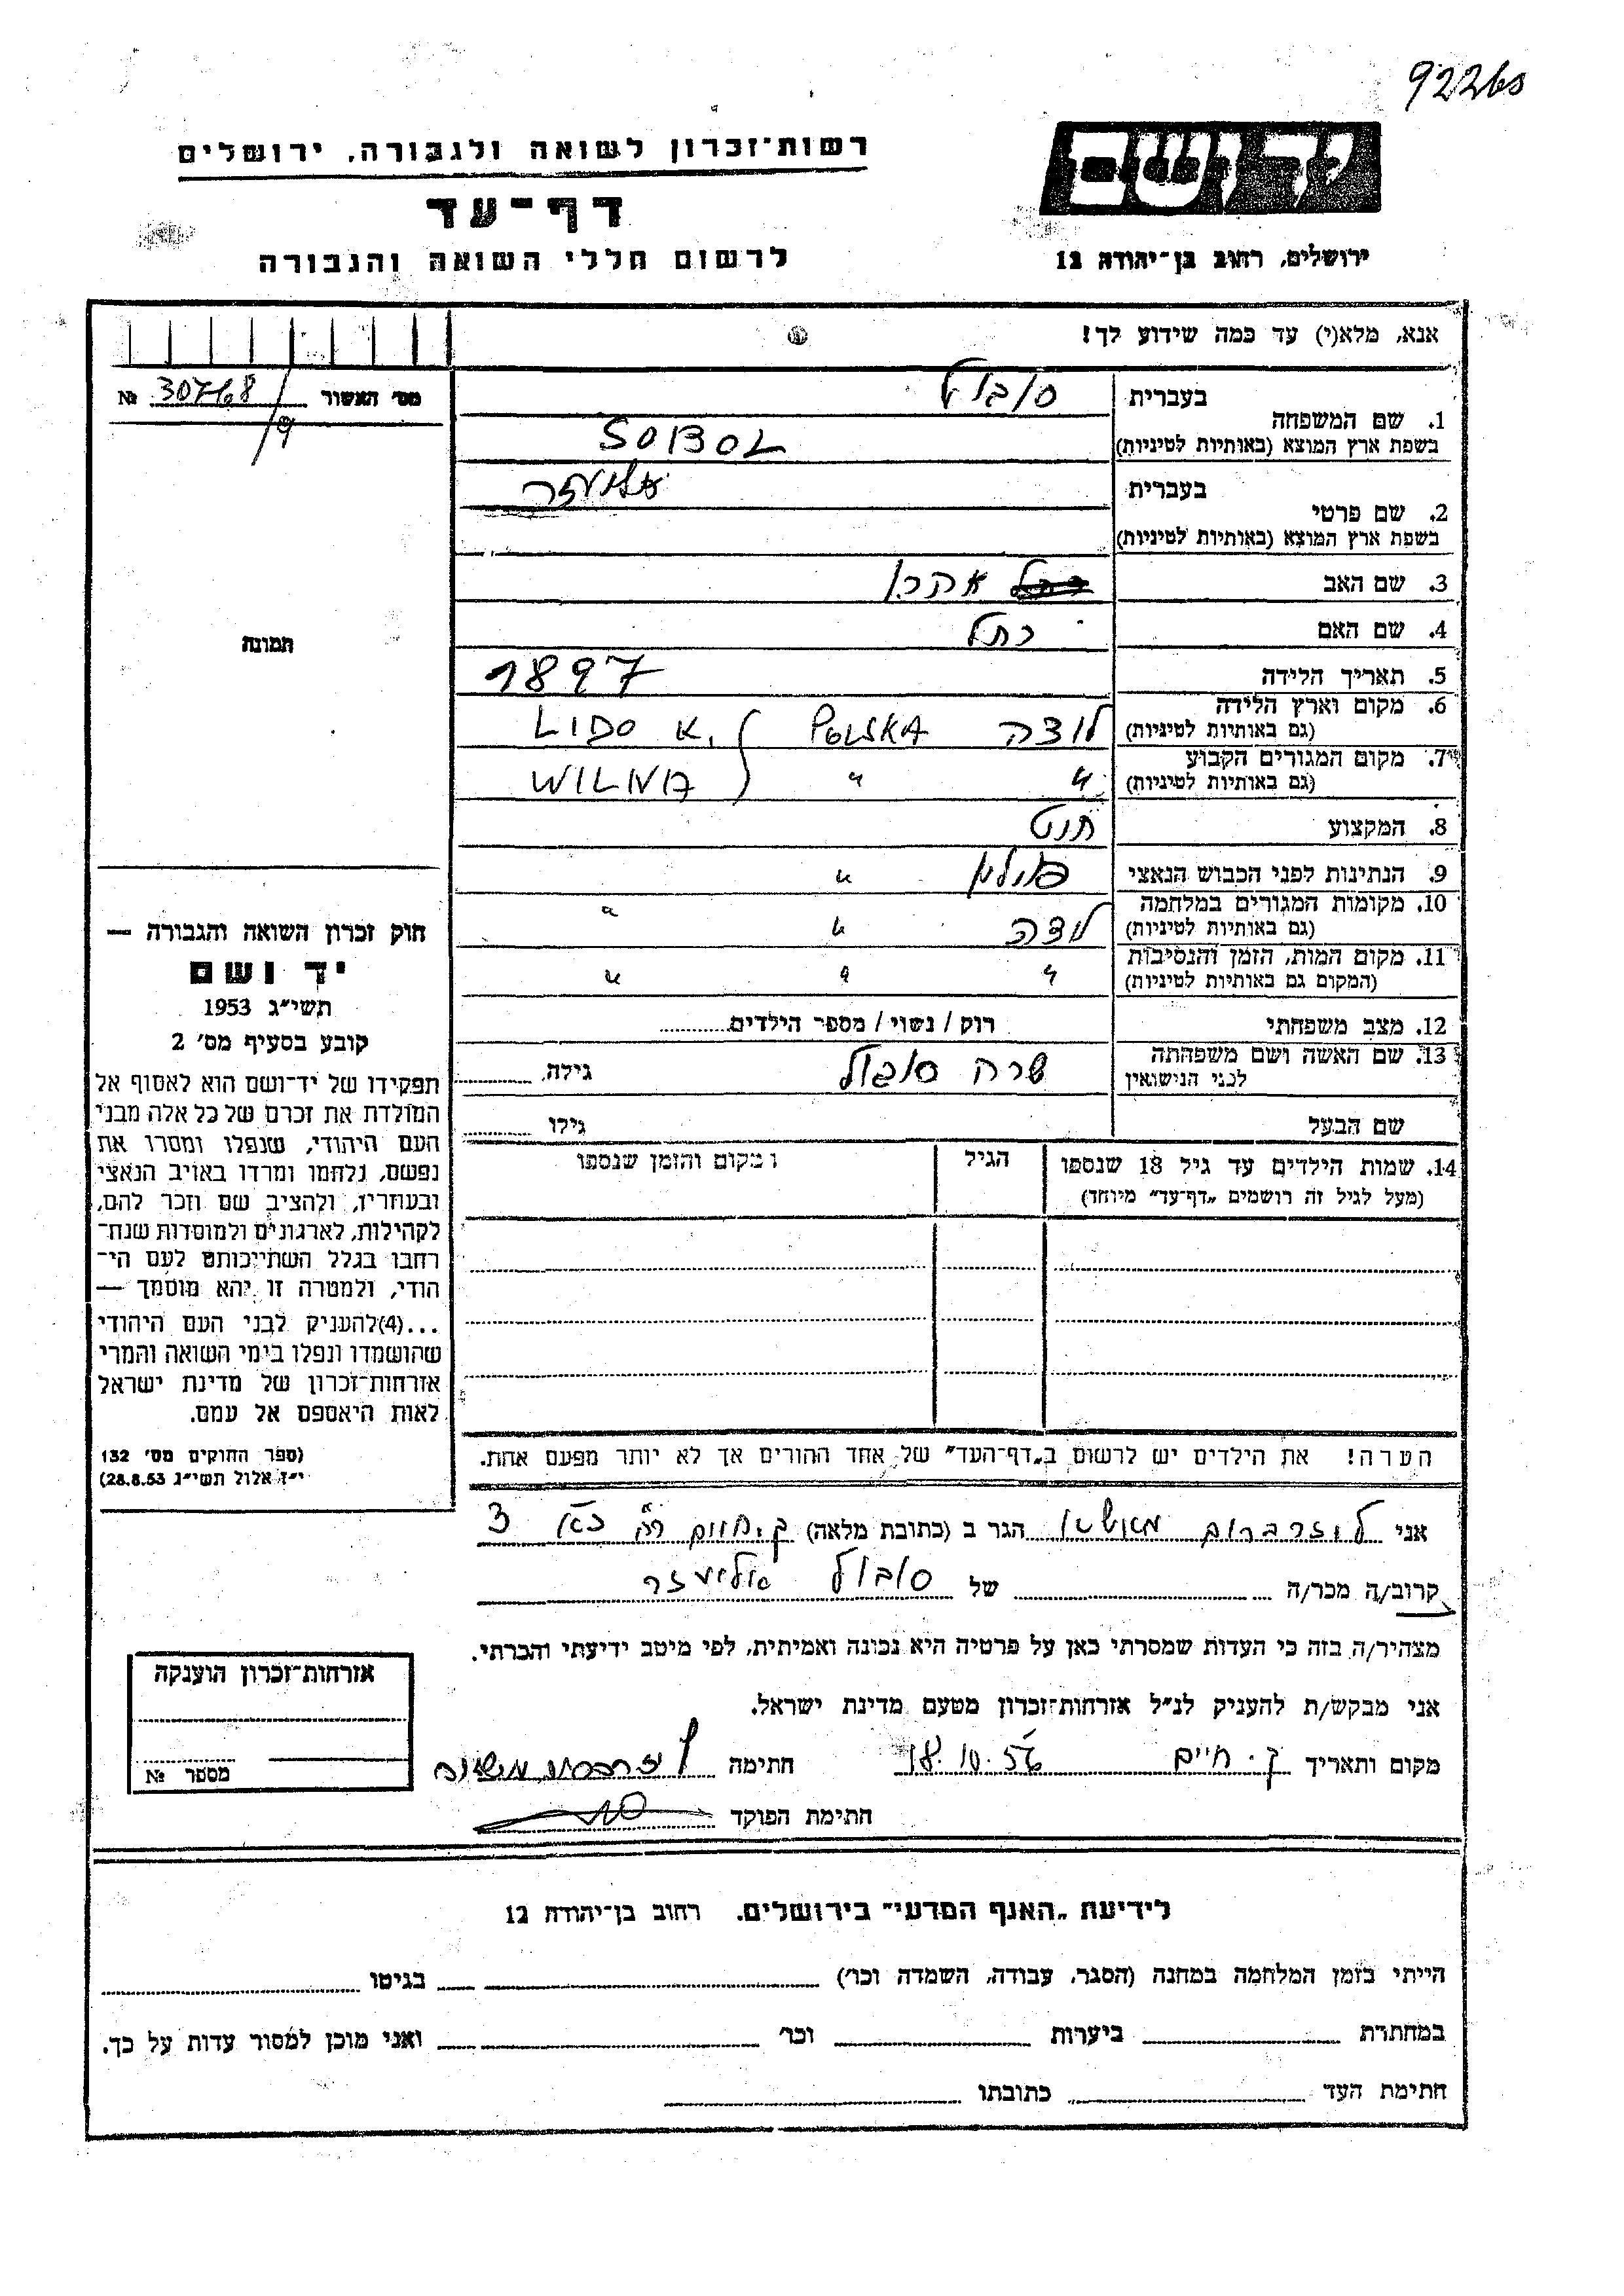 92260
רשות־זכרון לשואה ולגבורה, ירושלים
יד ושם
דף־עד
לרשום חללי השואה והגבורה
ירושלים, רחוב בן־יהודה 12
אנא, מלא(י) עד כמה שידוע לך!
מס׳ האשור 30768 №
/9
בעברית סובול
1. שם המשפחה
בשפת ארץ המוצא (באותיות לטיניות) SOBOL
בעברית אליעזר
2. שם פרטי
בשפת ארץ המוצא (באותיות לטיניות)
3. שם האב אהרן
4. שם האם רחל
תמונה
5. תאריך הלידה 1897
6. מקום וארץ הלידה
(גם באותיות לטיניות) POLSKA LIDO
7. מקום המגורים הקבוע
(גם באותיות לטיניות) " " WILNA
8. המקצוע
9. הנתינות לפני הכבוש הנאצי פולין "
10. מקומות המגורים במלחמה
(גם באותיות לטיניות) " "
11. מקום המות, הזמן והנסיבות
(המקום גם באותיות לטיניות) " " "
12. מצב משפחתי רוק / נשוי / מספר הילדים
13. שם האשה ושם משפחתה
לפני הנישואין שרה סובול גילה
שם הבעל גילו
14. שמות הילדים עד גיל 18 שנספו הגיל ומקום והזמן שנספו
(מעל לגיל זה רושמים „דף־עד״ מיוחד)
הערה! את הילדים יש לרשום ב„דף־העד״ של אחד ההורים אך לא יותר מפעם אחת.
חוק זכרון השואה והגבורה —
יד ושם
תשי״ג 1953
קובע בסעיף מס׳ 2
תפקידו של יד־ושם הוא לאסוף אל
המולדת את זכרם של כל אלה מבני
העם היהודי, שנפלו ומסרו את
נפשם, נלחמו ומרדו באויב הנאצי
ובעוזריו, ולהציב שם וזכר להם,
לקהילות, לארגונים ולמוסדות שנח־
רחבו בגלל השתייכותם לעם הי־
הודי, ולמטרה זו יהא מוסמך —
...(4)להעניק לבני העם היהודי
שהושמדו ונפלו בימי השואה והמרי
אזרחות־זכרון של מדינת ישראל
לאות היאספם אל עמם.
(ספר החוקים מס׳ 132
י״ז אלול תשי״ג 28.8.53)
אני הגר ב (כתובת מלאה) 3
קרוב/ה מכר/ה של סובול אליעזר
מצהיר/ה בזה כי העדות שמסרתי כאן על פרטיה היא נכונה ואמיתית, לפי מיטב ידיעתי והכרתי.
אני מבקש/ת להעניק לנ״ל אזרחות־זכרון מטעם מדינת ישראל.
מקום ותאריך ק. חיים 18.10.56 חתימה
חתימת הפוקד
אזרחות־זכרון הוענקה
מספר №
לידיעת „האגף המדעי״ בירושלים. רחוב בן־יהודה 12
הייתי בזמן המלחמה במחנה (הסגר, עבודה, השמדה וכו׳) בגיטו
במחתרת ביערות וכו׳ ואני מוכן למסור עדות על כך.
חתימת העד כתובתו